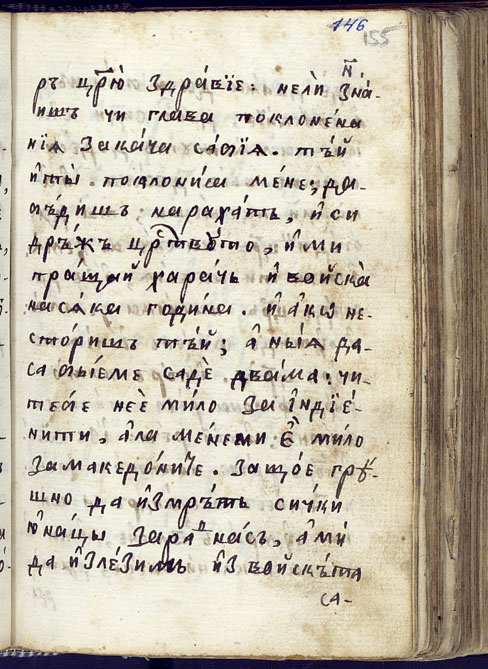 146
155
ръ цр҃ю̀ здра́вїе. нелѝ зна́-
ишъ чи глава поклоне́на
нїѧ зака́ча са́бїѧ. тъ́й
и҆ ты̀ поклони́са ме́не, да-
съ́дишъ нараха́тъ, и҆ си
дръ́жъ цр҇твото, и҆ ми
пра́щай хара́чь и҆ войска̀
на са́ка годи́на. и҆ а҆кѡ не-
сто́ришъ тъ́й; а҆ ны́ѧ да-
са бїе́ме садѐ два́ма. чи-
тебе неѐ ми́ло за и҆ндїе́-
нити, а҆ла ме́неми е҆̀ ми́ло
за македо́ниче. защо́е грѣ-
шно да и҆змрътъ си́чки
ю҆на́цы зарад насъ, а҆ мѝ
да и҆зле́зимъ и҆з войскъта
са-